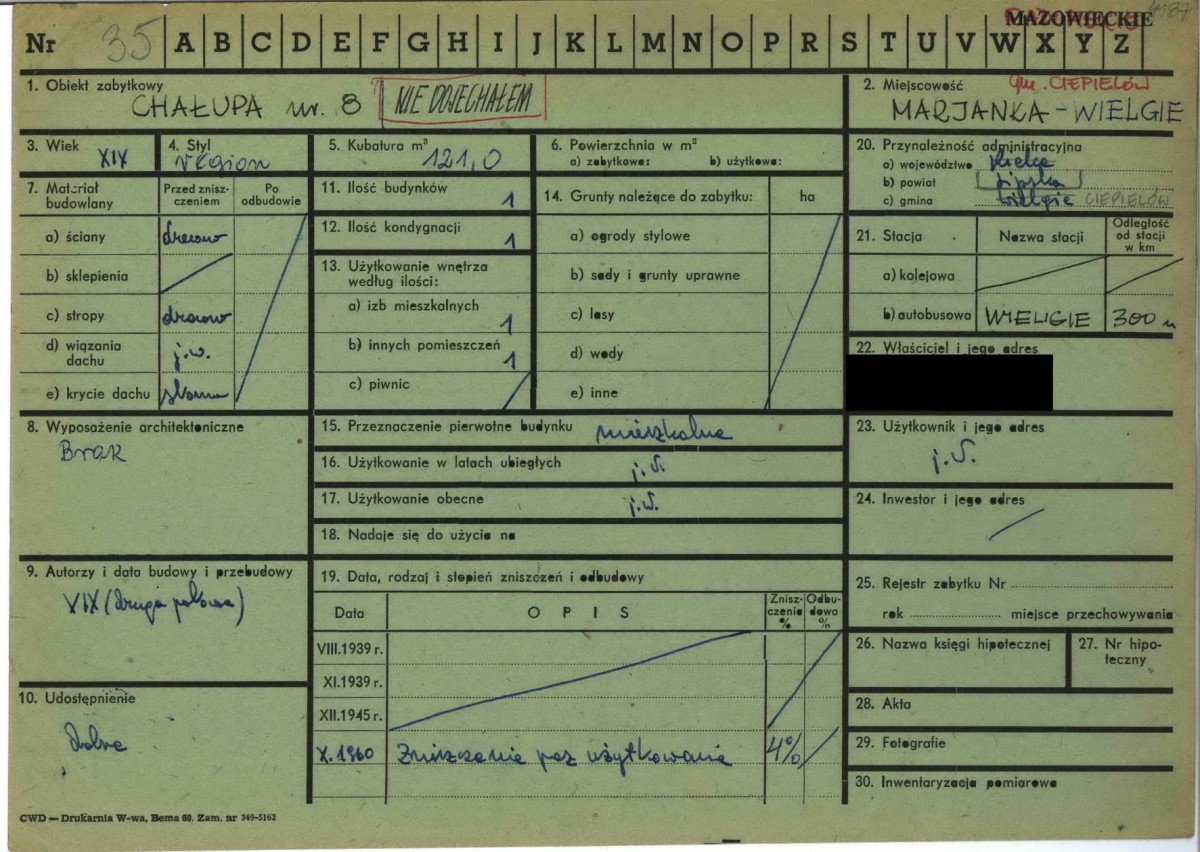 MAZOWIECKIE
4187
Nr 35 A B C D E F G H I J K L M N O P R S T U V W X Y Z
1. Obiekt zabytkowy
CHAŁUPA nr. 8 NIE DOJECHAŁEM
2. Miejscowość gm. CIEPIELÓW
MARJANKA - WIELGIE
3. Wiek XIX
4. Styl region
5. Kubatura m³ 121,0
6. Powierzchnia w m²
a) zabytkowa: b) użytkowa:
7. Materiał budowlany
Przed zniszczeniem
Po odbudowie
a) ściany drewno
b) sklepienia
c) stropy drewno
d) wiązania dachu j.w.
e) krycie dachu słoma
11. Ilość budynków 1
12. Ilość kondygnacji 1
13. Użytkowanie wnętrza według ilości:
a) izb mieszkalnych 1
b) innych pomieszczeń 1
c) piwnic
14. Grunty należące do zabytku: ha
a) ogrody stylowe
b) sady i grunty uprawne
c) lasy
d) wody
e) inne
20. Przynależność administracyjna
a) województwo Kielce
b) powiat Lipsko
c) gmina Wielgie CIEPIELÓW
21. Stacja Nazwa stacji Odległość od stacji w km
a) kolejowa
b) autobusowa WIELGIE 300 m
22. Właściciel i jego adres
8. Wyposażenie architektoniczne
Brak
15. Przeznaczenie pierwotne budynku mieszkalne
16. Użytkowanie w latach ubiegłych j.w.
17. Użytkowanie obecne j.w.
18. Nadaje się do użycia na
23. Użytkownik i jego adres
j.w.
24. Inwestor i jego adres
9. Autorzy i data budowy i przebudowy
XIX (druga połowa)
19. Data, rodzaj i stopień zniszczeń i odbudowy
Data OPIS Zniszczenia % Odbudowa %
VIII.1939 r.
XI.1939 r.
XII.1945 r.
X.1960 Zniszczenia przez użytkowanie 4%
25. Rejestr zabytku Nr
rok miejsce przechowywania
26. Nazwa księgi hipotecznej
27. Nr hipoteczny
28. Akta
29. Fotografie
30. Inwentaryzacja pomiarowa
10. Udostępnienie
dobre
CWD — Drukarnia W-wa, Bema 60. Zam. nr 349-5162